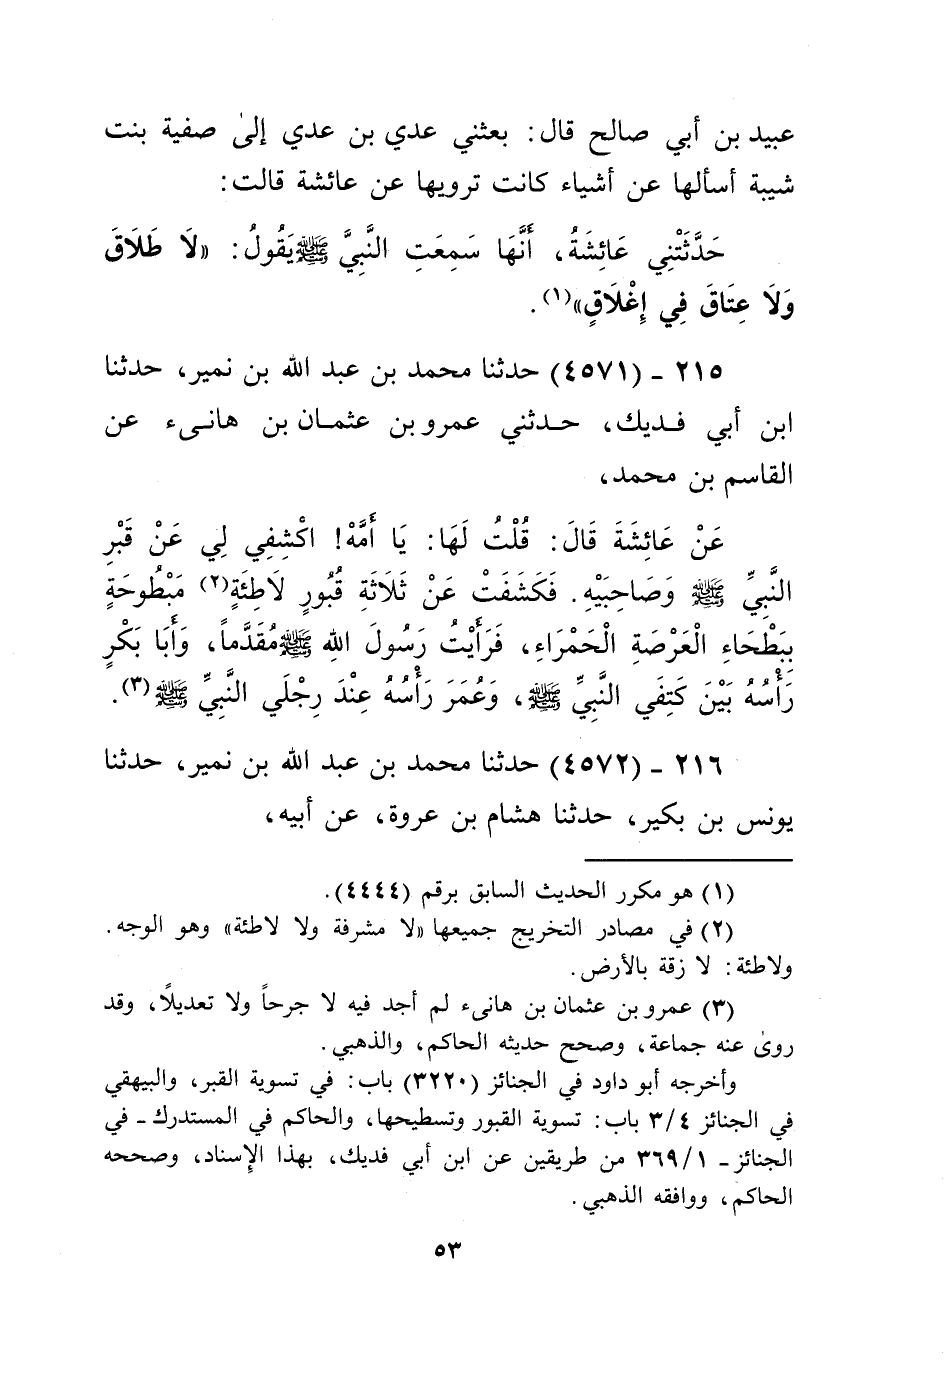 عبيد بن أبي صالح قال: بعثني عدي بن عدي إلىٰ صفية بنت
شيبة أسألها عن أشياء كانت ترويها عن عائشة قالت:
حَدَّثَتْنِي عَائِشَةُ، أَنَّهَا سَمِعَتِ النَّبِيَّ ﷺ يَقُولُ: «لَا طَلَاقَ
وَلَا عِتَاقَ فِي إِغْلَاقٍ»(١).
٢١٥ ـ (٤٥٧١) حدثنا محمد بن عبد الله بن نمير، حدثنا
ابن أبي فديك، حدثني عمرو بن عثمان بن هانىء عن
القاسم بن محمد،
عَنْ عَائِشَةَ قَالَ: قُلْتُ لَهَا: يَا أُمَّهْ! اكْشِفِي لِي عَنْ قَبْرِ
النَّبِيِّ ﷺ وَصَاحِبَيْهِ. فَكَشَفَتْ عَنْ ثَلَاثَةِ قُبُورٍ لَاطِئَةٍ(٢) مَبْطُوحَةٍ
بِبَطْحَاءِ الْعَرْصَةِ الْحَمْرَاءِ، فَرَأَيْتُ رَسُولَ اللهِ ﷺ مُقَدَّماً، وَأَبَا بَكْرٍ
رَأْسُهُ بَيْنَ كَتِفَي النَّبِيِّ ﷺ، وَعُمَرَ رَأْسُهُ عِنْدَ رِجْلَي النَّبِيِّ ﷺ(٣).
٢١٦ ـ (٤٥٧٢) حدثنا محمد بن عبد الله بن نمير، حدثنا
يونس بن بكير، حدثنا هشام بن عروة، عن أبيه،
(١) هو مكرر الحديث السابق برقم (٤٤٤٤).
(٢) في مصادر التخريج جميعها «لا مشرفة ولا لاطئة» وهو الوجه.
ولاطئة: لا زقة بالأرض.
(٣) عمرو بن عثمان بن هانىء لم أجد فيه لا جرحاً ولا تعديلًا، وقد
روىٰ عنه جماعة، وصحح حديثه الحاكم، والذهبي.
وأخرجه أبو داود في الجنائز (٣٢٢٠) باب: في تسوية القبر، والبيهقي
في الجنائز ٣/٤ باب: تسوية القبور وتسطيحها، والحاكم في المستدرك ـ في
الجنائز ـ ٣٦٩/١ من طريقين عن ابن أبي فديك، بهذا الإسناد، وصححه
الحاكم، ووافقه الذهبي.
٥٣